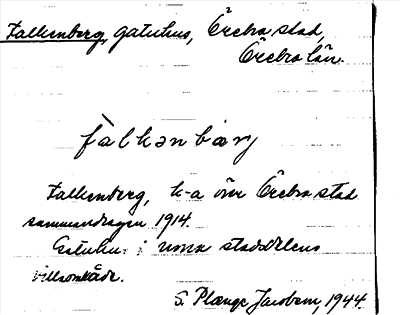 Falkenberg, gatuhus, Örebro stad,
Örebro län.
falkənbärj
Falkenberg, k-a över Örebro stad
sammandragen 1914.
Gatuhus i norra stadsdelens
villaområde.
S. Plange Jacobson, 1944.